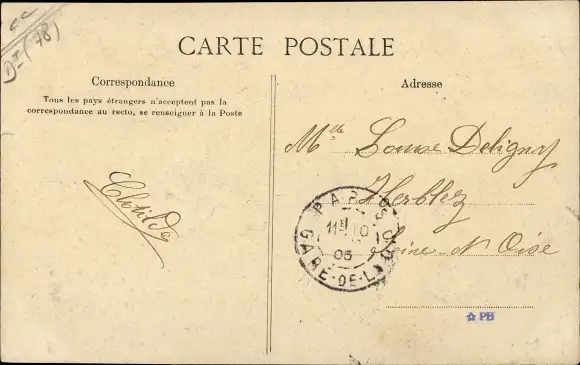 CC
DT (78)
CARTE POSTALE
Correspondance
Tous les pays étrangers n'acceptent pas la
correspondance au recto, se renseigner à la Poste
Clotilde
Adresse
Mlle Louise Deligny
Herblay
Seine & Oise
PARIS
11 10
05
GARE-DE-L
PB